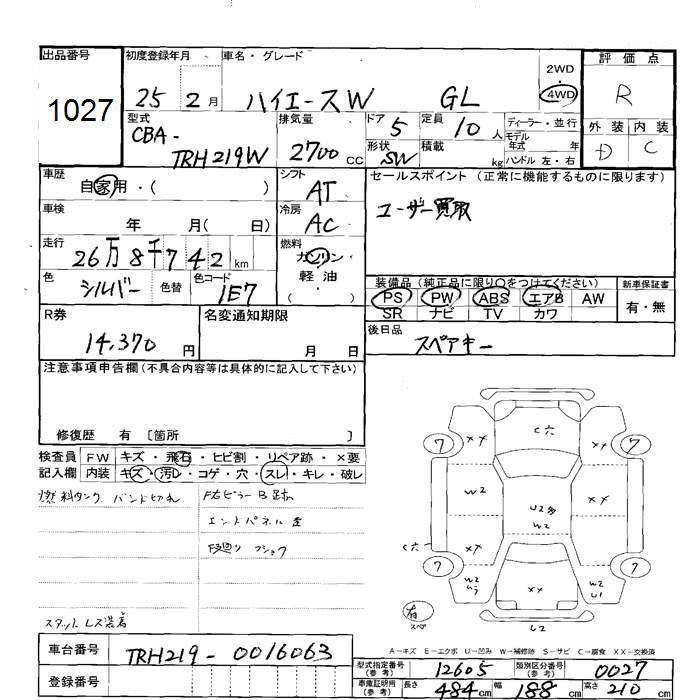 出品番号
1027
初度登録年月
25 2月
車名・グレード
ハイエースW GL
2WD
4WD
評価点
R
外装 内装
D C
型式
CBA-
TRH219W
排気量
2700 CC
ドア
5
定員
10 人
形状
SW
積載
kg
ディーラー・並行
モデル
年式 年
ハンドル 左・右
車歴
自家用・( )
車検
年 月( 日)
走行
26万8千742 km
色
シルバー
色替
色コード
1E7
シフト
AT
冷房
AC
燃料
ガソリン
軽油
( )
セールスポイント(正常に機能するものに限ります)
ユーザー買取
装備品(純正品に限り○をつけてください)
PS PW ABS エアB AW
SR ナビ TV カワ
新車保証書
有・無
後日品
スペアキー
R券
14,370 円
名変通知期限
月 日
注意事項申告欄(不具合内容等は具体的に記入して下さい)
修復歴 有 〔箇所 〕
検査員
記入欄
FW キズ・飛石・ヒビ割・リペア跡・×要
内装 キズ・汚レ・コゲ・穴・スレ・キレ・破レ
燃料タンク バンド切れ
F右ピラーB跡
エンドパネル歪
F廻り フショク
スタットレス装着
車台番号
TRH219-0016063
登録番号
7 XX C穴 XX 7
W2 U2多 W2 XX
C穴 XX XX
7 W2 XX W2 U1 7
有
スペ
U2
A-キズ E-エクボ U-凹み W-補修跡 S-サビ C-腐食 XX-交換済
型式指定番号
(参考)
12605
類別区分番号
(参考)
0027
車庫証明用
(参考)
長さ 484cm 幅 188cm 高さ 210cm